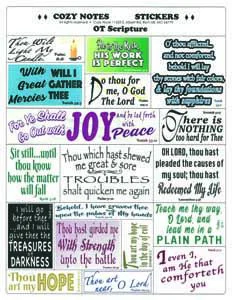 COZY NOTES STICKERS
OT Scripture
Thou Wilt
Light My
Candle
Psalms
HIS WORK
IS PERFECT
O thou afflicted,
and not comforted,
behold, I will lay
thy stones with fair colors,
& lay thy foundations
with sapphires
With
Great
Mercies
WILL I
GATHER
THEE
Do thou for
me, O God
The Lord
Psalms
For Ye Shall
Go Out with
JOY
and be led forth
with
Peace
There is
NOTHING
too hard for Thee
Sit still...until
thou know
how the matter
will fall
Thou which hast shewed
me great & sore
TROUBLES
shalt quicken me again
OH LORD, thou hast
pleaded the causes of
my soul; thou hast
Redeemed My Life
I will go
before thee
and I will
give thee the
TREASURES
of
DARKNESS
Behold, I have graven thee
upon the palms of My hands
Thou hast girded me
With Strength
unto the battle
Thou art my
in the day of evil
Teach me thy way,
O Lord, and
lead me in a
PLAIN PATH
Thou
art my HOPE
Thou art
near, O Lord
I even I,
am He that
comforteth
you